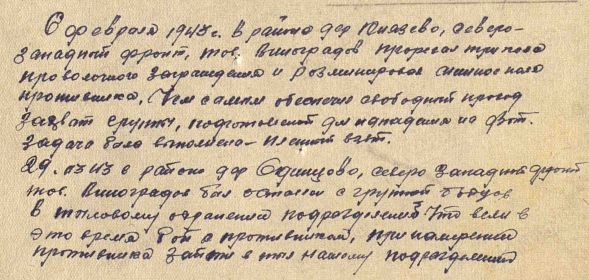 6 февраля 1943 г. в районе дер Князево, северо-
западный фронт, тов. Виноградов прорезал три кола
проволочного заграждения и разминировал минное поле
противника, чем самым обеспечил свободный проход
захват группы, подготовленной для нападения на дзот.
Задача была выполнена - пленный взят.
29.03.43 в районе дер Одинцово, северо западный фронт
тов. Виноградов был оставлен с группой бойцов
в тыловому охранении подразделений что вели в
это время бой с противником, при намерении
противника зайти в тыл нашему подразделению